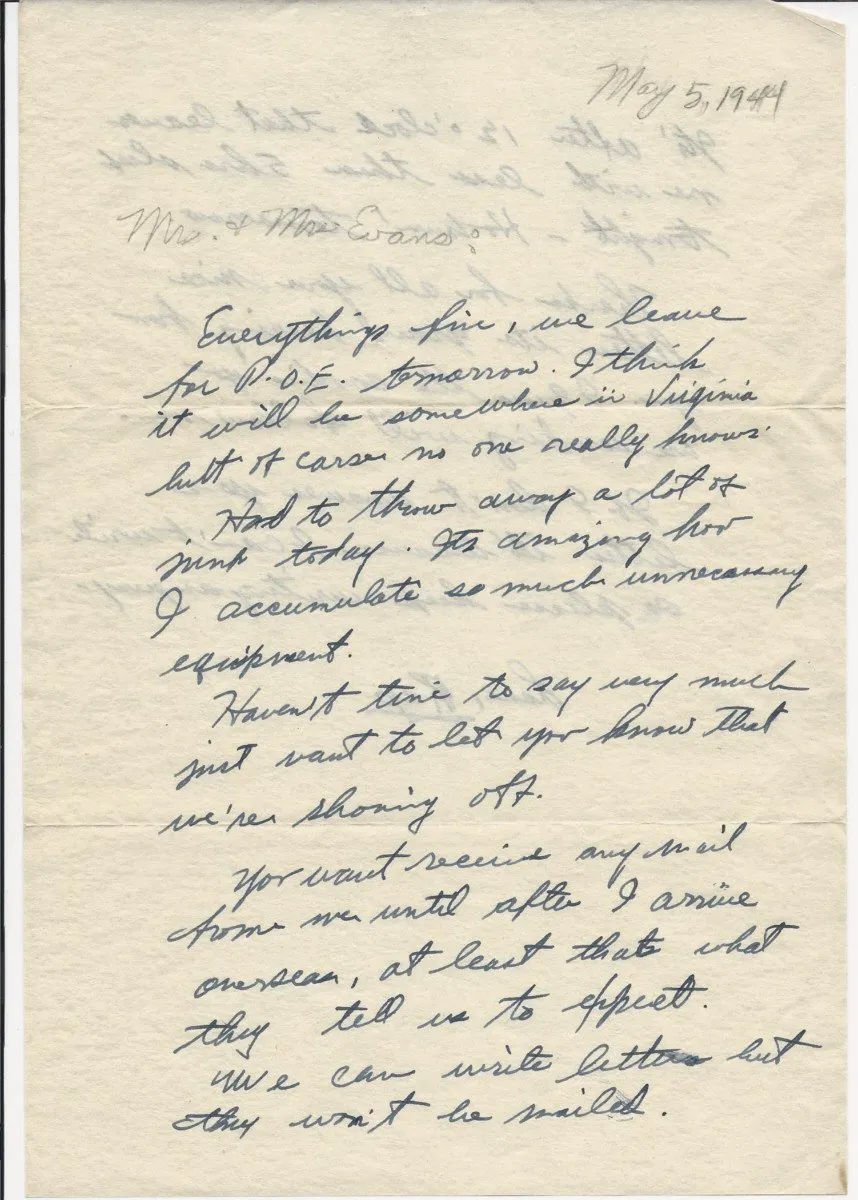 May 5, 1944
Mr. & Mrs Evans:
Everythings fine, we leave
for P.O.E. tomorrow. I think
it will be somewhere in Virginia
but of carse no one really knows.
Had to throw away a lot of
junk today. Its amazing how
I accumulate so much unnecessary
equipment.
Haven't time to say very much
just want to let you know that
we're shoving off.
You want receive any mail
from me until after I arrive
overseas, at least thats what
they tell us to expect.
We can write letters but
they won't be mailed.